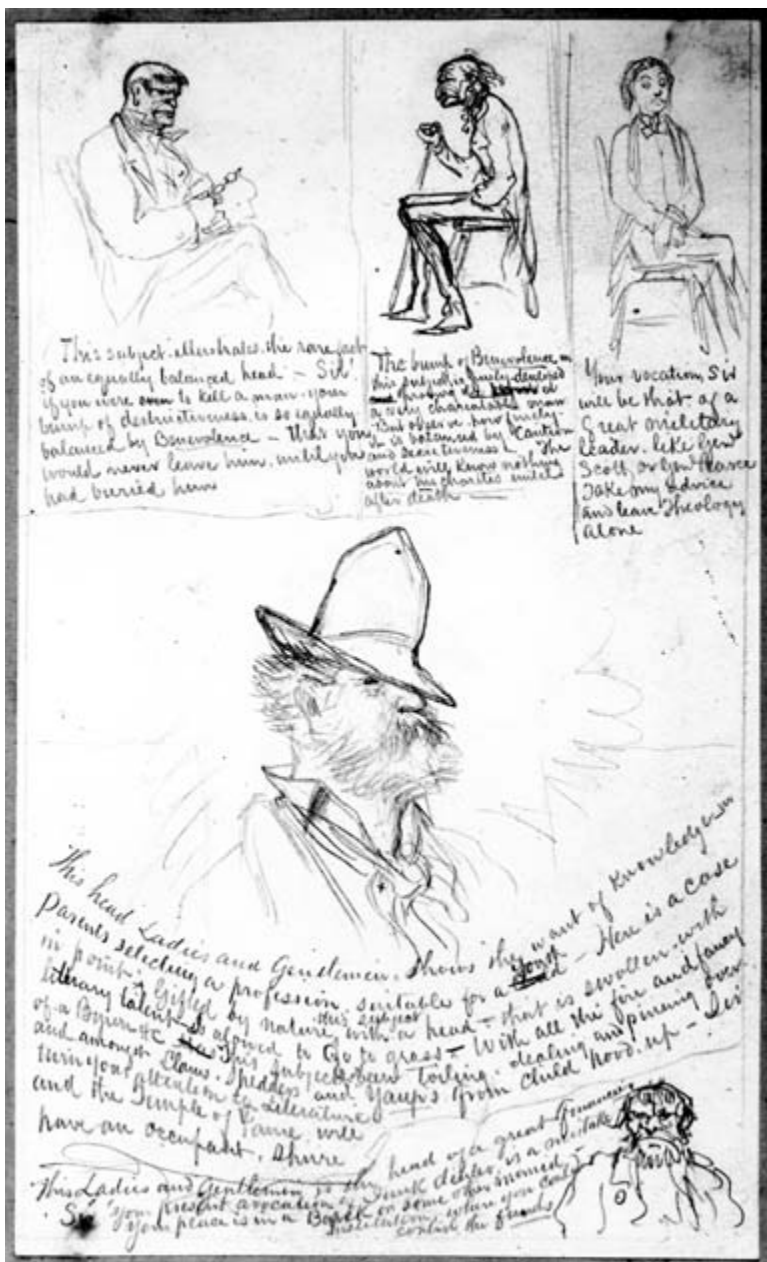 This subject illustrates the rare fact
of an equally balanced head – Sir
if you were even to kill a man – your
bump of destructiveness is so equally
balanced by Benevolence – that you
would never leave him, until you
had buried him
The bump of Benevolence in
this subject is finely develoed
a very charitable man
But observe how finely
is balanced by Caution
and secretiveness! The
world will know nothing
about his charities until
after death
Your vocation, Sir
will be that of a
Great military
leader. like Genl
Scott, or Genl Pearce
Take my advice
and leave Theology
alone
This head Ladies and Gentlemen, shows the want of knowledge in
Parents selecting a profession, suitable for a youth – Here is a case
in point, Gifted by nature, with a head – that is swollen with
literary talent – this subject is allowed to Go to grass – With all the fire and fancy
of a Byron &c this subject been toiling, dealing and pineing over
and amongst Clams, Shedders and Yaups from child hood. up – Sir
turn your attention to Literature
and the Temple of Fame will
have an occupant, Shure
This Ladies and Gentlemen is the head of a great
Sir your present avocation of Junk dealer, is a mistake
your peace is in a Bank or some other monied
institution where you can
control the funds